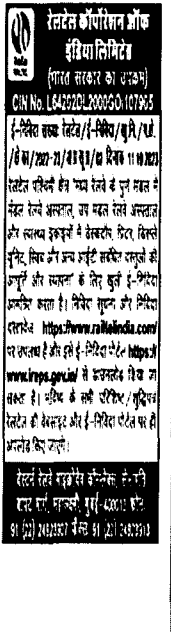 रेलटेल कॉर्पोरेशन ऑफ
इंडिया लिमिटेड
(भारत सरकार का उपक्रम)
CIN No. L64202DL2000GOI107905
ई-निविदा संख्या रेलटेल/ई-निविदा/
दिनांक 11.10.2023
रेलटेल पश्चिमी क्षेत्र मध्य रेलवे के पुणे मंडल में
मंडल रेलवे अस्पताल, उप मंडल रेलवे अस्पताल
और स्वास्थ्य इकाइयों में डेस्कटॉप, प्रिंटर, डिस्प्ले
यूनिट, स्विच और अन्य आईटी संबंधित वस्तुओं की
आपूर्ति और स्थापना के लिए खुली ई-निविदा
आमंत्रित करता है। निविदा सूचना और निविदा
दस्तावेज https://www.railtelindia.com/
पर उपलब्ध है और इसे ई-निविदा पोर्टल https://
www.ireps.gov.in/ से डाउनलोड किया जा
सकता है। भविष्य के सभी परिशिष्ट/शुद्धिपत्र
रेलटेल की वेबसाइट और ई-निविदा पोर्टल पर ही
अपलोड किए जाएंगे।
वेस्टर्न रेलवे माइक्रोवेव कॉम्प्लेक्स, सेनापति
बापट मार्ग, महालक्ष्मी, मुंबई-400013 फोन: